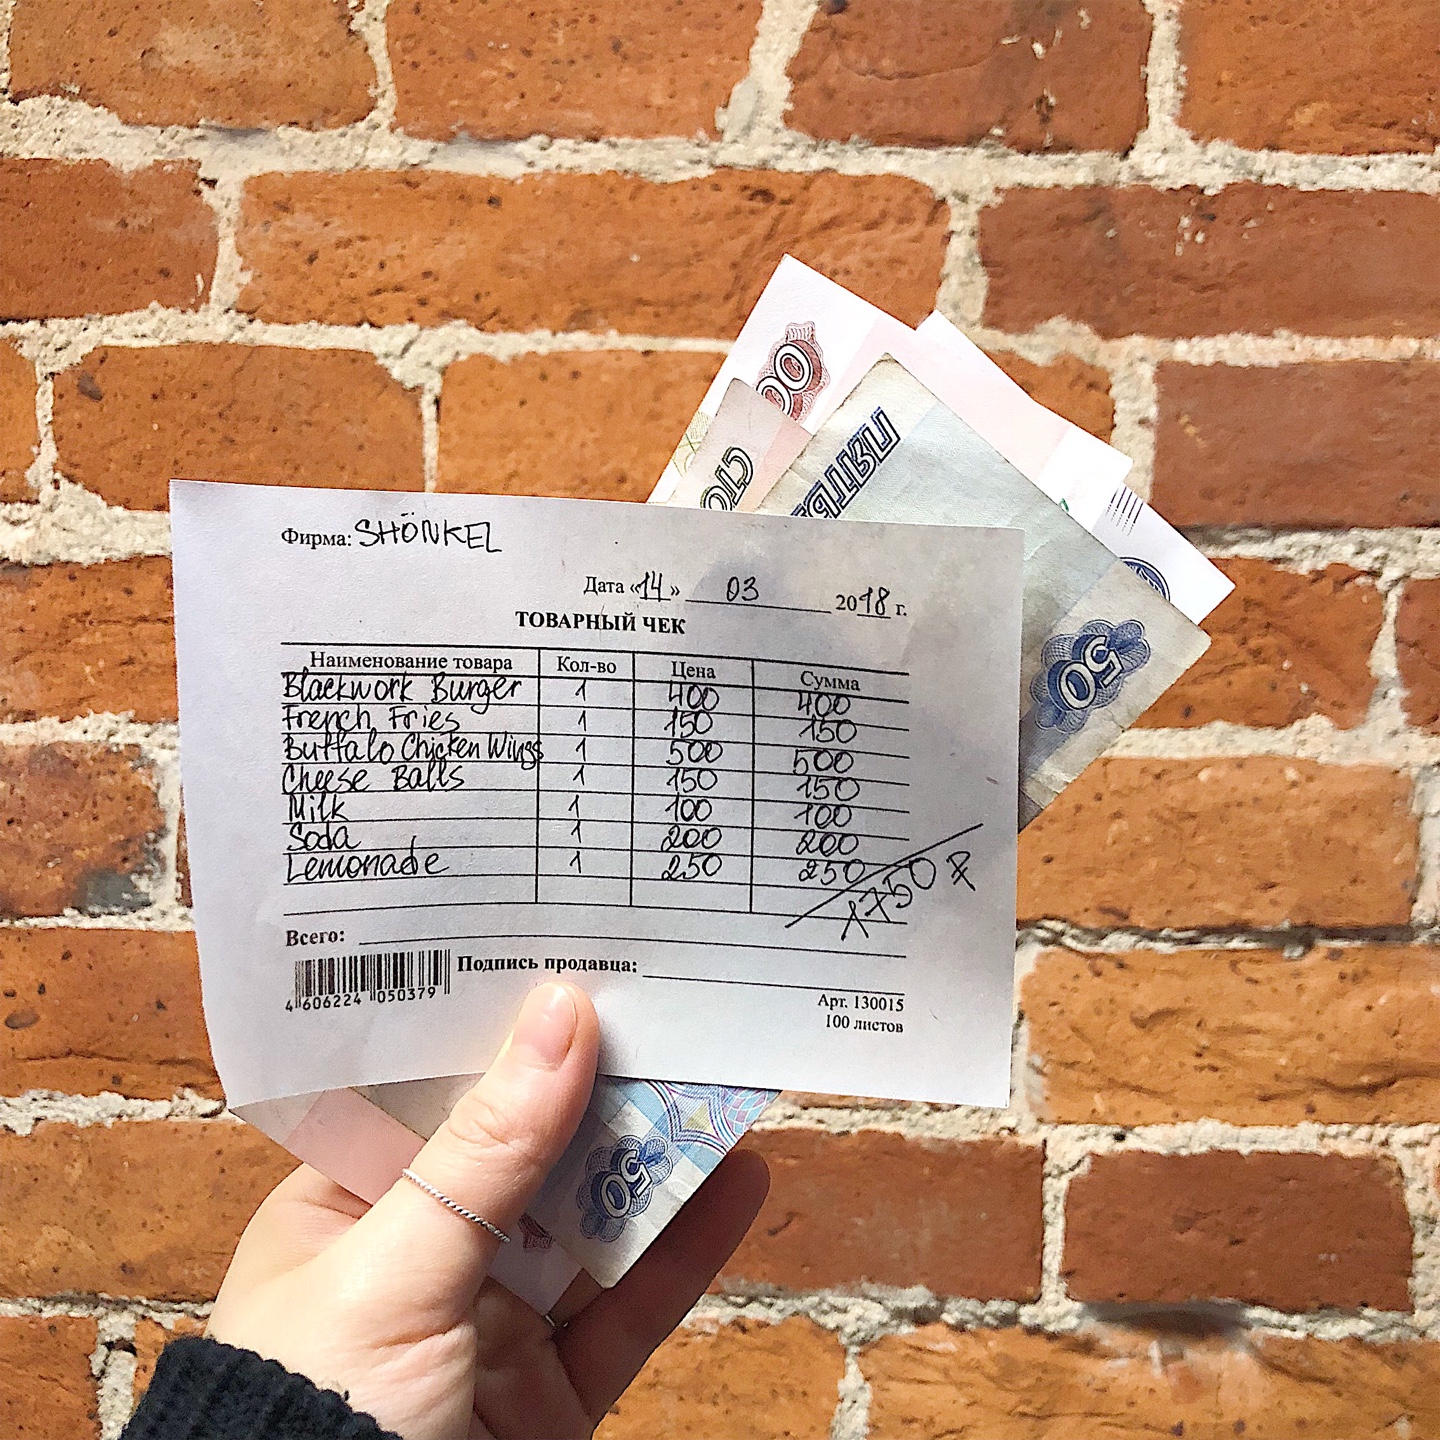 СТО
ПЯТЬ
50
Фирма: SHÖNKEL
Дата «14» 03 2018 г.
ТОВАРНЫЙ ЧЕК
Наименование товара Кол-во Цена Сумма
Blackwork Burger 1 400 400
French Fries 1 150 150
Buffalo Chicken Wings 1 500 500
Cheese Balls 1 150 150
Milk 1 100 100
Soda 1 200 200
Lemonade 1 250 250
1750 ₽
Всего:
Подпись продавца:
4 606224 050379
Арт. 130015
100 листов
50